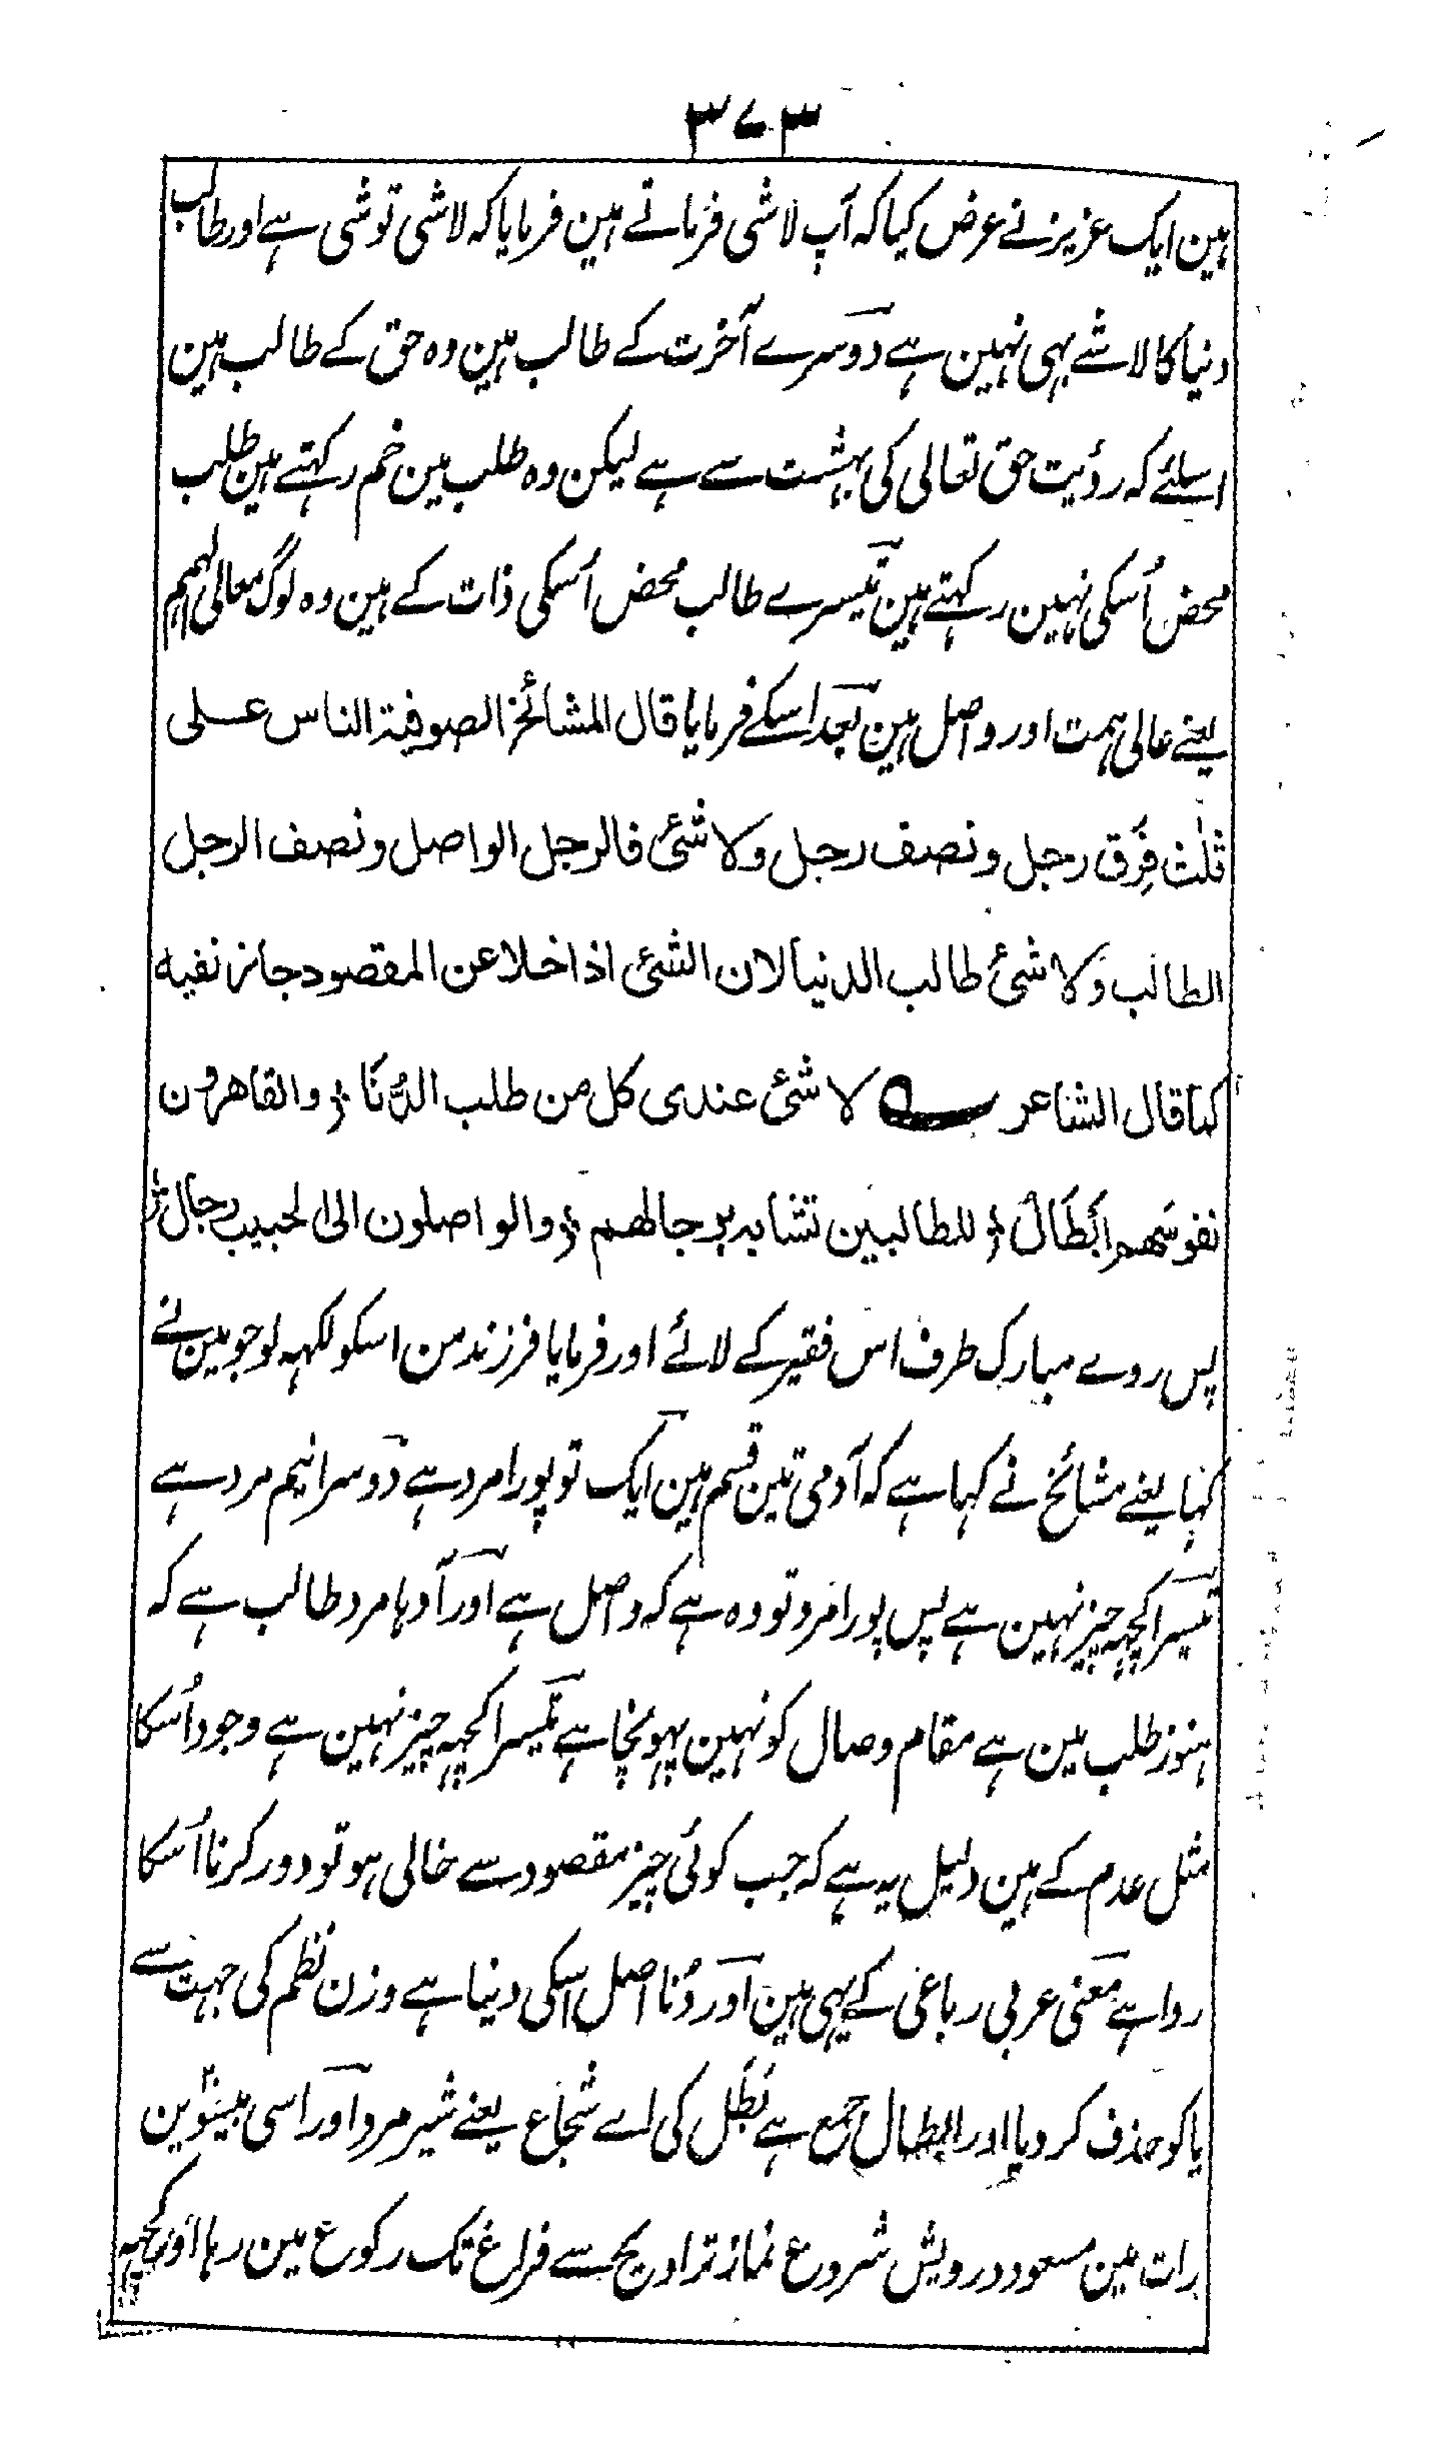 ۳۷۳
ہین ایک عزیز نے عرض کیا کہ آپ لاشی فرماتے ہین فرمایا کہ لاشی توشی ہے اور طالب
دنیا کا لاشے بہی نہین ہے دوسرے آخرت کے طالب ہین وہ حق کے طالب ہین
اسلئے کہ رؤیت حق تعالی کی بہشت سے ہے لیکن وہ طلب مین خم رکہتے ہین طلب
محض اُسکی نہین رکہتے ہین تیسرے طالب محض اُسکی ذات کے ہین وہ لوگ معالی الہمم
یعنے عالی ہمت اور واصل ہین بعد اسکے فرمایا قال المشائخ الصوفیۃ الناس علی
ثلٰث فِرَق رجل ونصف رجل ولا شئ فالرجل الواصل ونصف الرجل
الطالب ولا شئ طالب الدنیا لان الشئ اذا خلا عن المقصود جاز نفیہ
کما قال الشاعر ؎ لا شئ عندی کل من طلب الدُّنَا ؛ والقاھرون
نفوسَھم اَبطَالٌ ؛ للطالبین تشابہ برجالھم ؛ والواصلون الی الحبیب رجال ؛
پس روے مبارک طرف اس فقیر کے لائے اور فرمایا فرزند من اسکو لکہہ لو جو مین نے
کہا یعنے مشائخ نے کہا ہے کہ آدمی تین قسم ہین ایک تو پورا مرد ہے دوسرا نیم مرد ہے
تیسرا کچہہ چیز نہین ہے پس پورا مرد تو وہ ہے کہ واصل ہے اور آدہا مرد طالب ہے کہ
ہنوز طلب مین ہے مقام وصال کو نہین پہونچا ہے تیسرا کچہہ چیز نہین ہے وجود اُسکا
مثل عدم کے ہین دلیل یہ ہے کہ جب کوئی چیز مقصود سے خالی ہو تو دور کرنا اُسکا
روا ہے معنی عربی رباعی کے یہی ہین اور دُنا اصل اسکی دنیا ہے وزن نظم کی جہت سے
یا کو حذف کر دیا اور ابطال جمع ہے بَطَل کی اے شجاع یعنے شیر مرد اور اسی بیسَوین
رات مین مسعود درویش شروع نماز تراویح سے فراغ تک رکوع مین رہا اور کچہہ